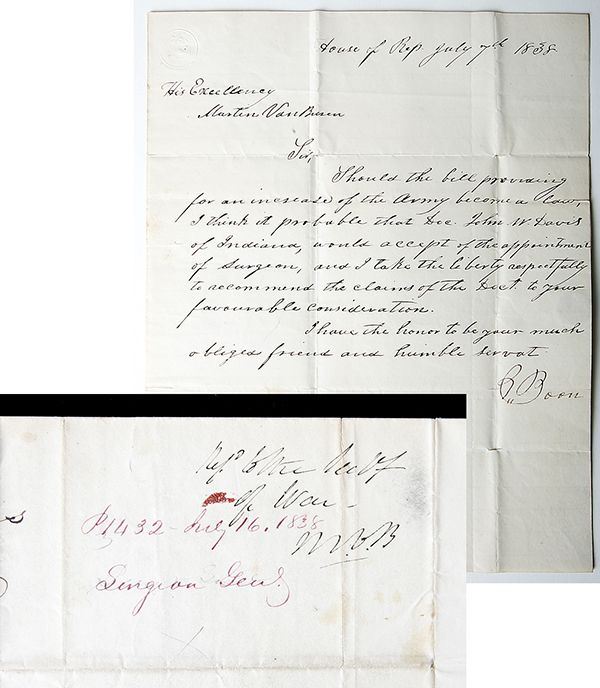 House of Rep. July 7th 1838
His Excellency
Martin Van Buren
Sir,
Should the bill providing
for an increase of the Army become a law,
I think it probable that Doc. John W. Davis
of Indiana, would accept of the appointment
of Surgeon, and I take the liberty respectfully
to recommend the claims of the Doct. to your
favourable consideration.
I have the honor to be your much
obliged friend and humble servat
R. Boon
Refd to the Secy of
of War -
M.V.B
1432 - July 16. 1838
Surgeon Genl.